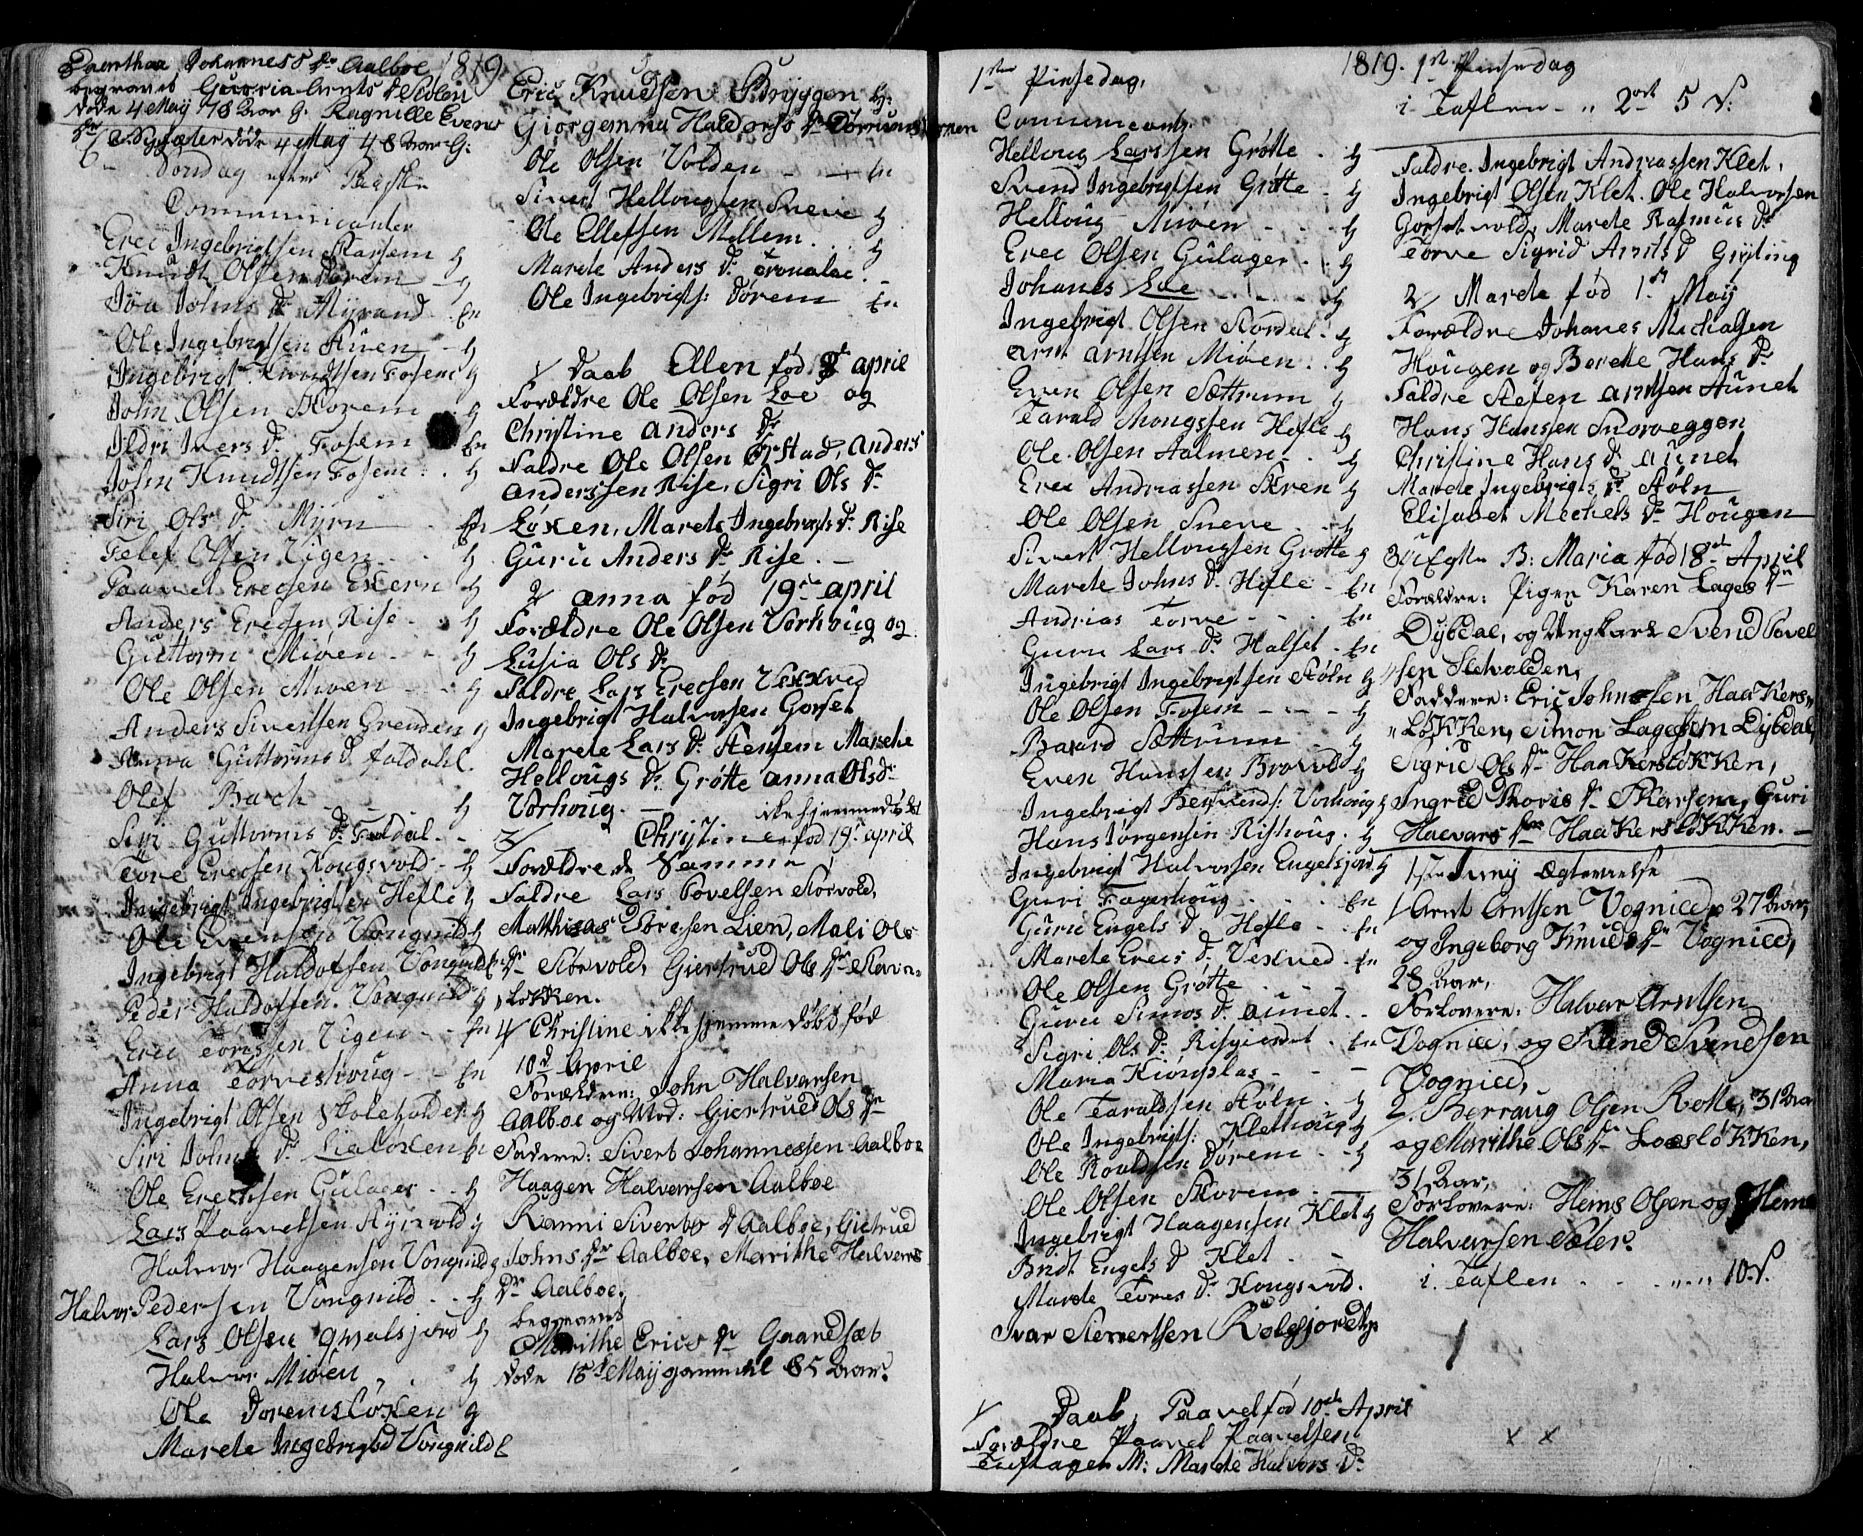 Dorthaa Johanness Dr Aalboe 1819.
begravet Guroia Arnts D Stölen
döde 4 May 78 Aar G. Ragnille Evens
Dr Sæter döde 4 May 48 Aar G:
6 Söndag efter Paaske
Communicanter
Erec Ingebrigtsen Skarsem h
Knudt Olsen Dörem h
Jöa Johns D. Myrand En
Ole Ingebrigtsen Huen h
Ingebrigt Knudtsen Fosem h
John Olsen Skorem h
Ildri Ivers Dr Fosem En
John Knudtsen Fosem h
Siri Ols D. Myrn En
Felef Olsen Vigen h
Paavel Erecsen Exern h
Anders Erecsen Rise h
Guttorm Miöen h
Ole Olsen Miöen h
Anders Sivertsen Grenden h
Anna Guttorms D faldahl.
Olef Bach h
Siri Guttorms D. Faldal
Tore Erecsen Kongsvold h
Ingebrigt Ingebrigtsen Hefle h
Ole Evensen Vongnild h
Ingebrigt Haldorsen Vongnild h
Peder Haldorsen Vongnild h
Eric Toressen Vigen En
Anna Torveshoug En
Ingebrigt Olsen Skoleholder h
Siri Johns D. Lialöxen En
Ole Erecksen Gulager h
Lars Paavelsen Nyrvold h
Halvor Haagensen Vongnild h
Halvor Pedersen Vongnild h
Lars Olsen qvalsjord h
Halvor Miöen h
Ole Doremslöxen h
Marete Ingebrigts D Vongnild E
Eric Knudsen Bryggen h.
Giorgemna Haldorss Dr
Ole Olsen Volden En
Sivert Hellougsen Sneve h
Ole Ellefsen Mellem h
Marete Anders D. Tronalae
Ole Ingebrigts: Dörem En
1/ Daab Ellen fød 8d april
Forældre Ole Olsen Loe og
Christine Anders Dr
Faldre Ole Olsen Örstad, Anders
Anderssen Rise, Sigri Ols Dr
Löxen, Marete Ingebrigts Dr Rise
Guru Anders Dr Rise.
2/ Anna fød 19de april
Forældre Ole Olsen Vorhoug og
Lusia Ols Dr
Faldre Lars Erecsen Vexxved
Ingebrigt Halvorsen Gorset
Marete Lars Dr Stensem Marsche
Hellougs Dr Grötte Anna Ols Dr
Vorhoug. ikke hjemmedöbt
3/ Christine fød 19. april
Forældre de Samme
Faldre Lars Povelsen Störvold,
Matthias Toresen Lien, Mali Ols
Dr Störvold, Giertrud Ols Dr Stavn-
lökken.
4/ Christine ikke hjemme döbt fød
10d April
Forældre: John Halvarsen
Aalboe og Mod: Giertrud Ols Dr
Faddere: Sivert Johannessen Aalboe
Haagen Halvarsen Aalboe
Ranni Siverts D Aalboe, Gietrud
Johns Dr Aalboe, Marithe Halvars
Dr Aalboe,
begravet
Marithe Erics Dr Gaardsæt
döde 15d May gammel 85 Aar.
1ste Pinsedag.
Communicants
Helloug Larssen Grötte h
Svend Ingebrigtsen Grötte h
Helloug Miöen h
Erec Olsen Gulager h
Johanes Loe h
Ingebrigt Olsen Stordal h
Arnt Arntsen Miöen h
Even Olsen Sættrum h
Tarald Mongssen Hefle h
Ole Olsen Aalmen h
Erec Andriassen Skren h
Ole Olsen Sneve h
Sivert Hellougsen Grötte h
Marete Johns D. Hefle En
Andrias Torve En
Guru Lars Dr Halset En
Ingebrigt Ingebrigtsen Stöln h
Ole Olsen Fosem h
Baard Sættrum h
Even Hanssen Brovold h
Ingebrigt Vorhoug h
Hans Jörgensen Rishoug h
Ingebrigt Halvorsen Engelsjord h
Guri Fagerhoug En
Guru Engels D Hefle En
Marete Erecs D. Vexved En
Ole Olsen Grötte
Guru Simos D. Aunet
Sigri Ols D. Risgierdet En
Maria Kiönsplas
Ole Taraldsen Stöln h
Ole Ingebrigts: Klethoug h
Ole Roaldsen Dörem h
Ole Olsen Skorem
Ingebrigt Haagensen Klet h
Brdt Engels D Klet
Marete Tores Dr Kongsvold.
Ivar Siewertsen Rölsjordet h
1/ Daab, Paavel fød 10de April
Forældre Paavel Paavelsen
M: Marete Halvors Dr
1819. 1ste Pinsedag
i Taflen 2 ort 5 s:
Faldre Ingebrigt Andriassen Klet,
Ingebrigt Olsen Klet. Ole Halvorsen
Gorsetvold, Marete Rasmus Dr
Torve Sigrid Arnts D Gryting
2/ Marete fød 1st May
Forældre Johanes Michalsen
Hougen og Berete Hans Dr
Faldre Stefen Arntsen Aunet
Hans Hanssen Snorveggen
Christine Hans D Aunet
Marete Ingebrigts Dr Stöln
Elisabet Mechels Dr Hougen
3/ uEgte B: Maria fød 18de April
Forældre: Pigen Karen Lages Dr
Dybdal, og Ungkarl Svend Povel
sen Stetvolden,
Faddere: Eric Johnssen Haakers-
lökken, Simon Lagessen Dybdal,
Sigrid Ols Dr Haakerslökken,
Ingrid Thoris Dr Skarsem, Guri
Halvars Dr Haakerslökken.
1ste Juny Ægtevielse
1 Arnt Arntsen Vognild 27 Aar,
og Ingeborg Knuds Dr Vognild,
28 Aar,
Forlovere: Halvar Arntsen
Vognild, og Svend Svendsen
Vognild,
2. Berraug Olsen Rotte, 31 Aar
og Marithe Ols Dr Loeslökken,
31 Aar,
Forlovere: Hems Olsen og Hems
Halvarsen Sæter.
i. Taflen 10 s.
x x